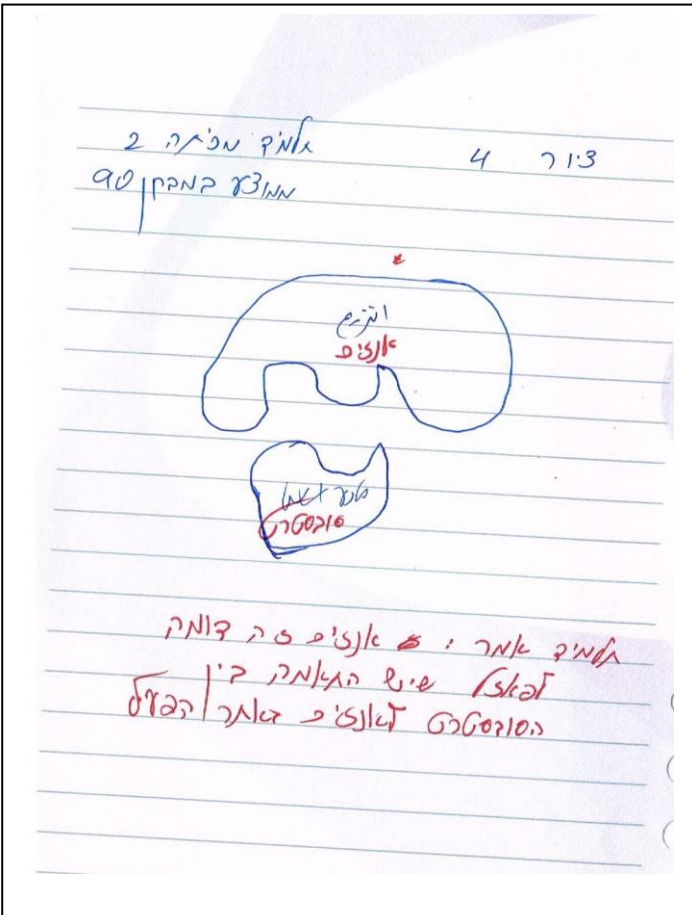 ציור 4
תלמיד מכיתה 2
ממוצע במבחן 90
אנזים
סובסטרט
תלמיד אמר: אנזים זה דומה
לפאזל שיש התאמה בין
הסובסטרט לאנזים באתר הפעיל